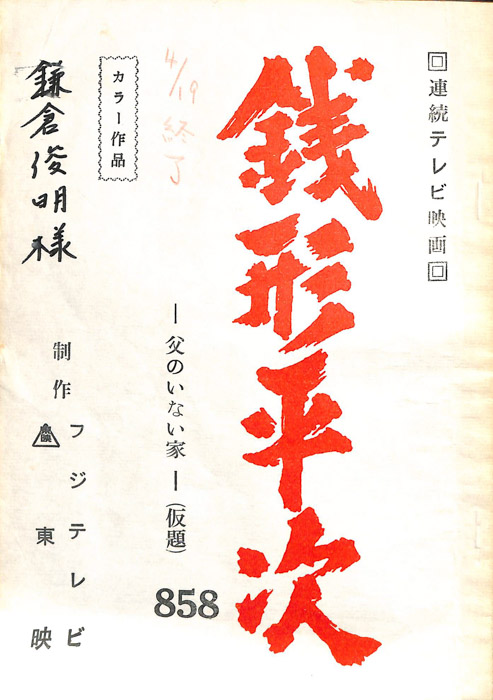 回連続テレビ映画回
銭形平次
―父のいない家―(仮題)
858
4/19終了
カラー作品
鎌倉俊明様
制作
フジテレビ
東映